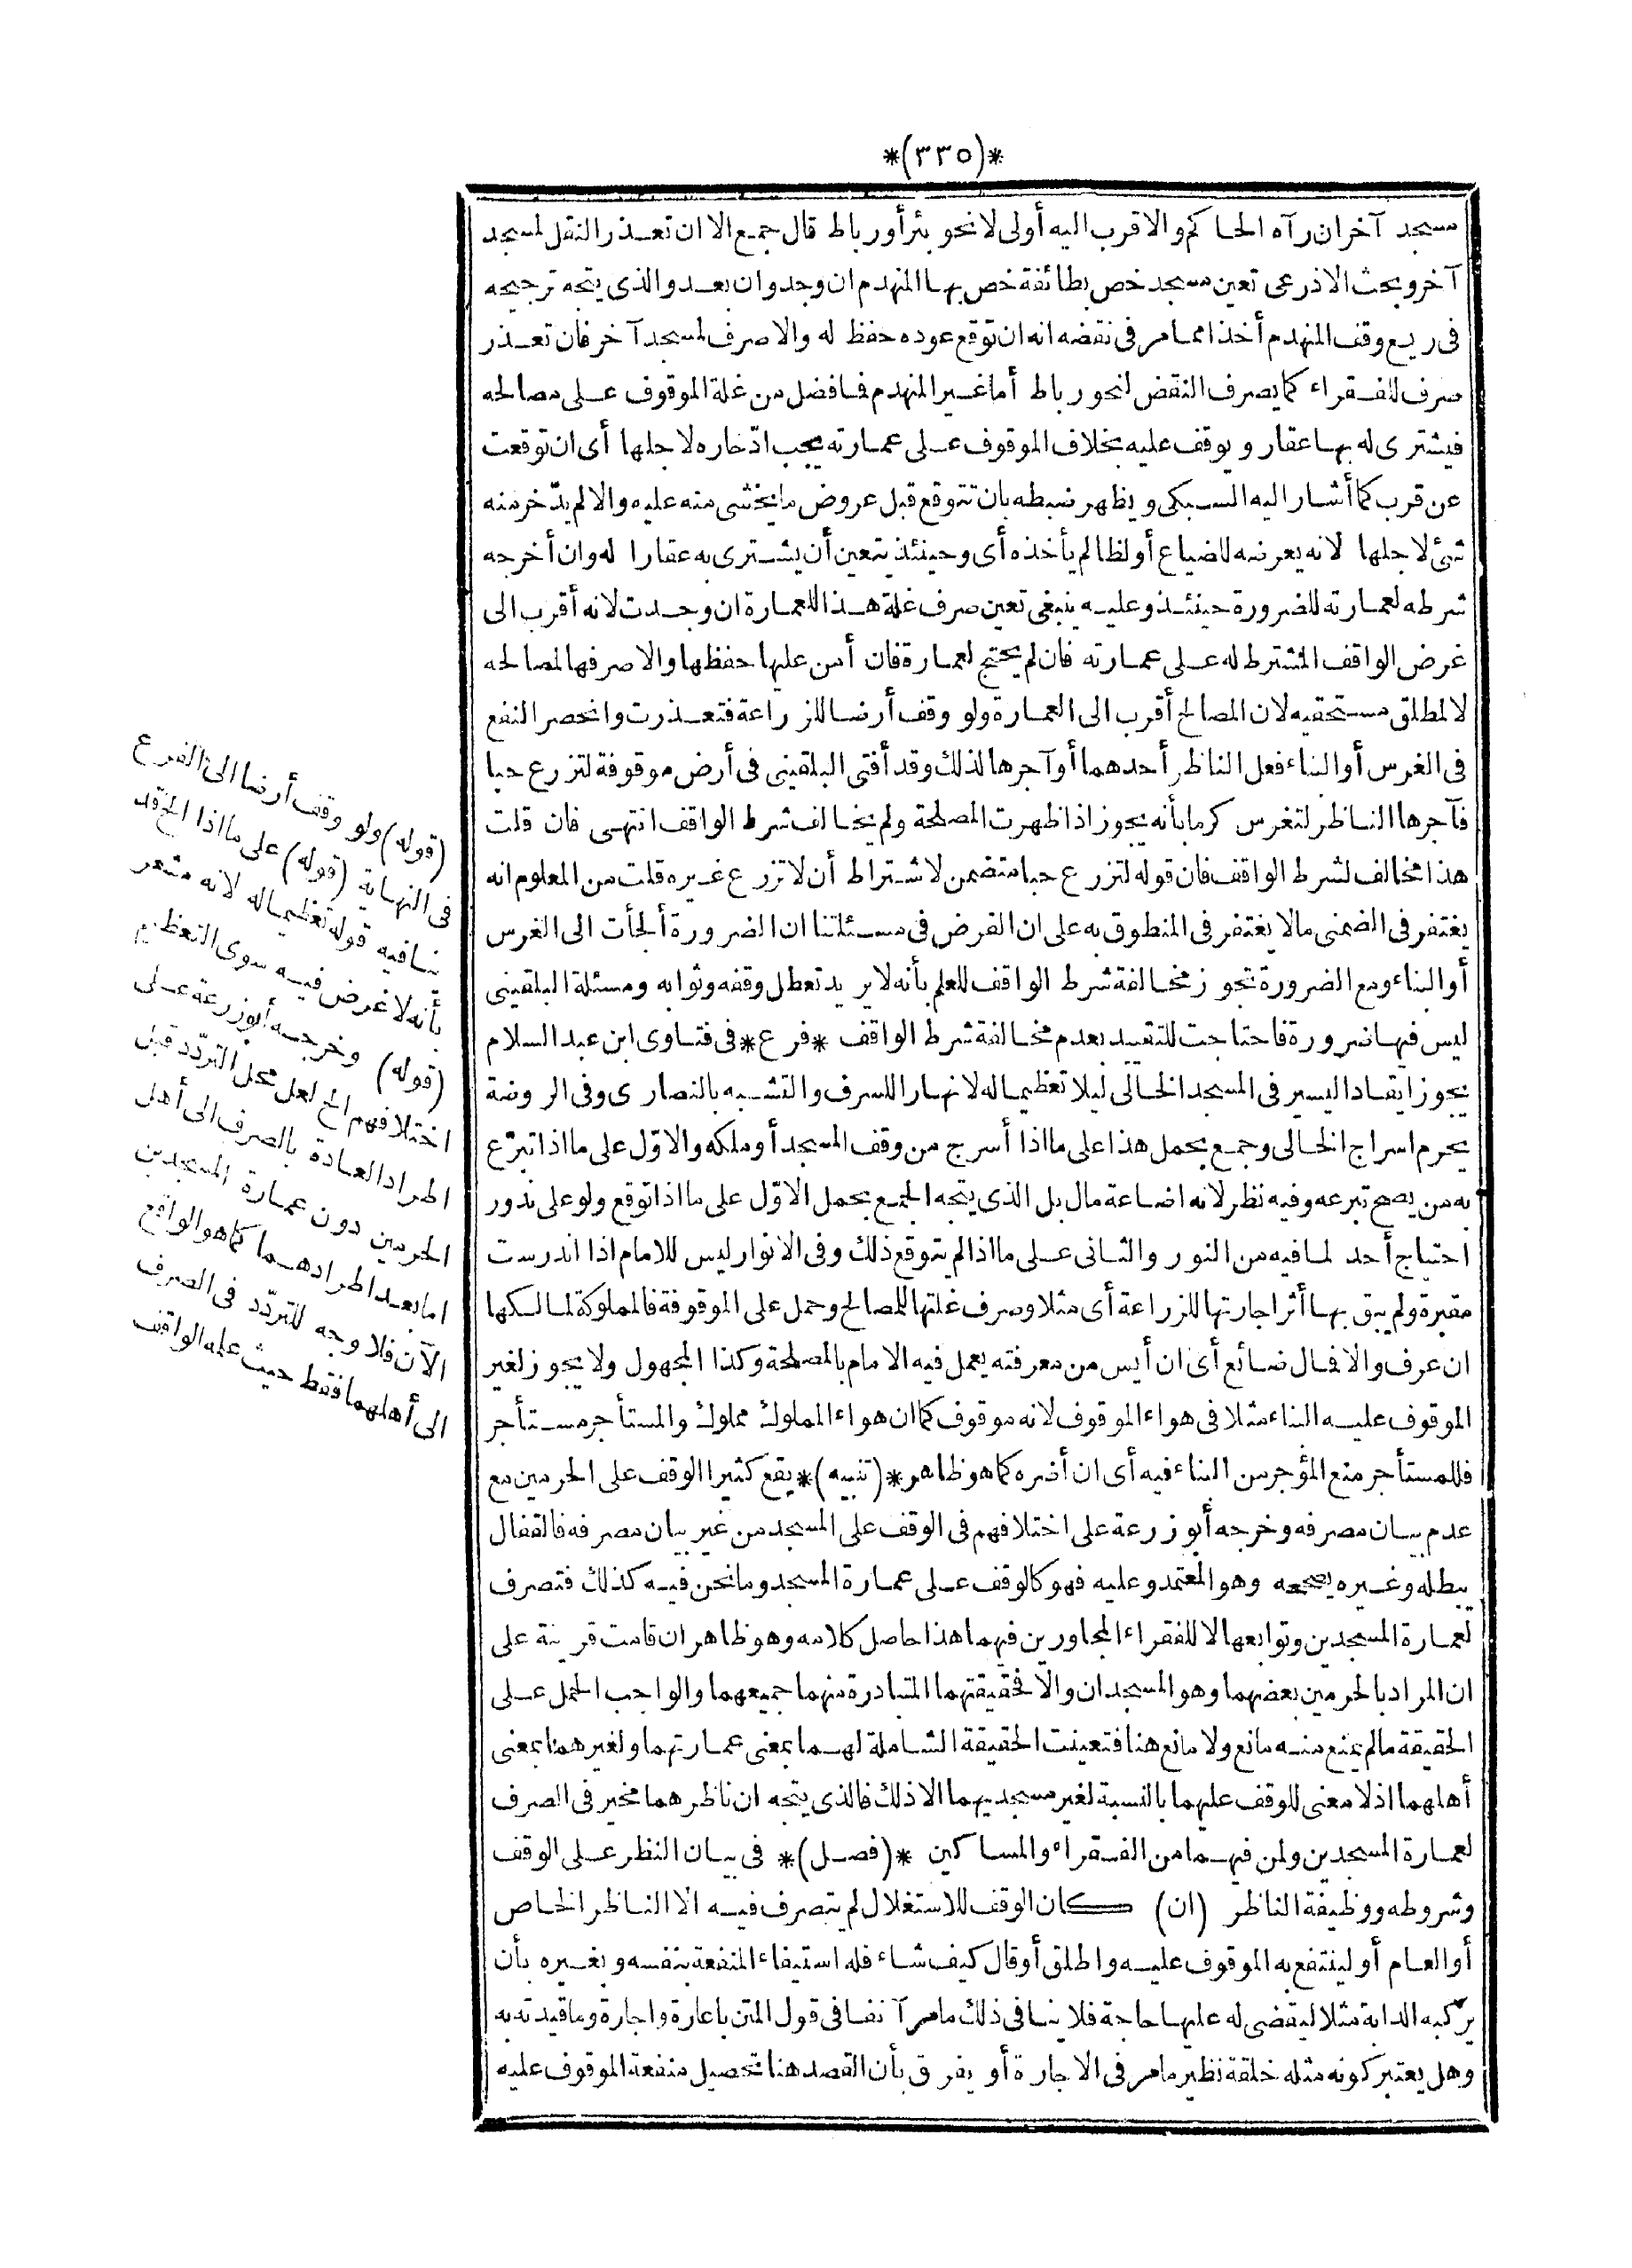 *(٣٣٥)*
مسجد آخر ان رآه الحاكم والاقرب اليه أولى لا نحو بئر أو رباط قال جمع الا ان تعذر النقل لمسجد
آخر وبحث الاذرعى تعين مسجد خص بطائفة خص بها المنهدم ان وجد وان بعد والذى يتجه ترجيحه
فى ريع وقف المنهدم أخذا مما مر فى نقضه انه ان توقع عوده حفظ له والا صرف لمسجد آخر فان تعذر
صرف للفقراء كما يصرف النقض لنحو رباط أما غير المنهدم فما فضل من غلة الموقوف على مصالحه
فيشترى له بها عقار ويوقف عليه بخلاف الموقوف على عمارته يجب ادّخاره لاجلها أى ان توقعت
عن قرب كما أشار اليه السبكى ويظهر ضبطه بان تتوقع قبل عروض ما يخشى منه عليه والا لم يدّخر منه
شئ لاجلها لانه يعرضه للضياع أو لظالم يأخذه أى وحينئذ يتعين أن يشترى به عقارا له وان أخرجه
شرطه لعمارته للضرورة حينئذ وعليه ينبغى تعين صرف غلة هذا للعمارة ان وجدت لانه أقرب الى
غرض الواقف المشترط له على عمارته فان لم يحتج لعمارة فان أمن عليها حفظها والا صرفها لمصالحه
لا لمطلق مستحقيه لان المصالح أقرب الى العمارة ولو وقف أرضا للزراعة فتعذرت وانحصر النفع
فى الغرس أو البناء فعل الناظر أحدهما أو آجرها لذلك وقد أفتى البلقينى فى أرض موقوفة لتزرع حبا
فآجرها الناظر لتغرس كرما بأنه يجوز اذا ظهرت المصلحة ولم يخالف شرط الواقف انتهى فان قلت
هذا مخالف لشرط الواقف فان قوله لتزرع حبا متضمن لاشتراط أن لا تزرع غيره قلت من المعلوم انه
يغتفر فى الضمنى ما لا يغتفر فى المنطوق به على ان الفرض فى مسئلتنا ان الضرورة ألجأت الى الغرس
أو البناء ومع الضرورة تجوز مخالفة شرط الواقف للعلم بأنه لا يريد تعطل وقفه وثوابه ومسئلة البلقينى
ليس فيها ضرورة فاحتاجت للتقييد بعدم مخالفة شرط الواقف *فرع* فى فتاوى ابن عبد السلام
يجوز ايقاد اليسير فى المسجد الخالى ليلا تعظيما له لا نهارا للسرف والتشبه بالنصارى وفى الروضة
يحرم اسراج الخالى وجمع بحمل هذا على ما اذا أسرج من وقف المسجد أو ملكه والاوّل على ما اذا تبرّع
به من يصح تبرعه وفيه نظر لانه اضاعة مال بل الذى يتجه الجمع بحمل الاوّل على ما اذا توقع ولو على ندور
احتياج أحد لما فيه من النور والثانى على ما اذا لم يتوقع ذلك وفى الانوار ليس للامام اذا اندرست
مقبرة ولم يبق بها أثر اجارتها للزراعة أى مثلا وصرف غلتها للمصالح وحمل على الموقوفة فالمملوكة لمالكها
ان عرف والا فمال ضائع أى ان أيس من معرفته يعمل فيه الامام بالمصلحة وكذا المجهول ولا يجوز لغير
الموقوف عليه البناء مثلا فى هواء الموقوف لانه موقوف كما ان هواء المملوك مملوك والمستأجر مستأجر
فللمستأجر منع المؤجر من البناء فيه أى ان أضره كما هو ظاهر *(تنبيه)* يقع كثيرا الوقف على الحرمين مع
عدم بيان مصرفه وخرجه أبو زرعة على اختلافهم فى الوقف على المسجد من غير بيان مصرفه فالقفال
يبطله وغيره يصححه وهو المعتمد وعليه فهو كالوقف على عمارة المسجد وما نحن فيه كذلك فتصرف
لعمارة المسجدين وتوابعها لا للفقراء المجاورين فيهما هذا حاصل كلامه وهو ظاهر ان قامت قرينة على
ان المراد بالحرمين بعضهما وهو المسجدان والا فحقيقتهما المتبادرة منهما جميعهما والواجب الحمل على
الحقيقة ما لم يمنع منه مانع ولا مانع هنا فتعينت الحقيقة الشاملة لهما بمعنى عمارتهما ولغيرهما بمعنى
أهلهما اذ لا معنى للوقف عليهما بالنسبة لغير مسجديهما الا ذلك فالذى يتجه ان ناظرهما مخير فى الصرف
لعمارة المسجدين ولمن فيهما من الفقراء والمساكين *(فصل)* فى بيان النظر على الوقف
وشروطه ووظيفة الناظر (ان) كان الوقف للاستغلال لم يتصرف فيه الا الناظر الخاص
أو العام أو لينتفع به الموقوف عليه واطلق أو قال كيف شاء فله استيفاء المنفعة بنفسه وبغيره بأن
يركبه الدابة مثلا ليقضى له عليها حاجة فلا ينافى ذلك ما مر آنفا فى قول المتن باعارة واجارة وما قيدته به
وهل يعتبر كونه مثله خلقة نظير ما مر فى الاجارة أو يفرق بأن القصد هنا تحصيل منفعة الموقوف عليه
(قوله) ولو وقف أرضا الى الفرع
فى النهاية (قوله) على ما اذا الخ قد
ينافيه قوله تعظيما له لانه مشعر
بأنه لا غرض فيه سوى التعظيم
(قوله) وخرجه أبو زرعة على
اختلافهم الخ لعل محل التردّد قبل
اطراد العادة بالصرف الى أهل
الحرمين دون عمارة المسجدين
اما بعد اطرادهما كما هو الواقع
الآن فلا وجه للتردّد فى الصرف
الى أهلهما فقط حيث علمه الواقف